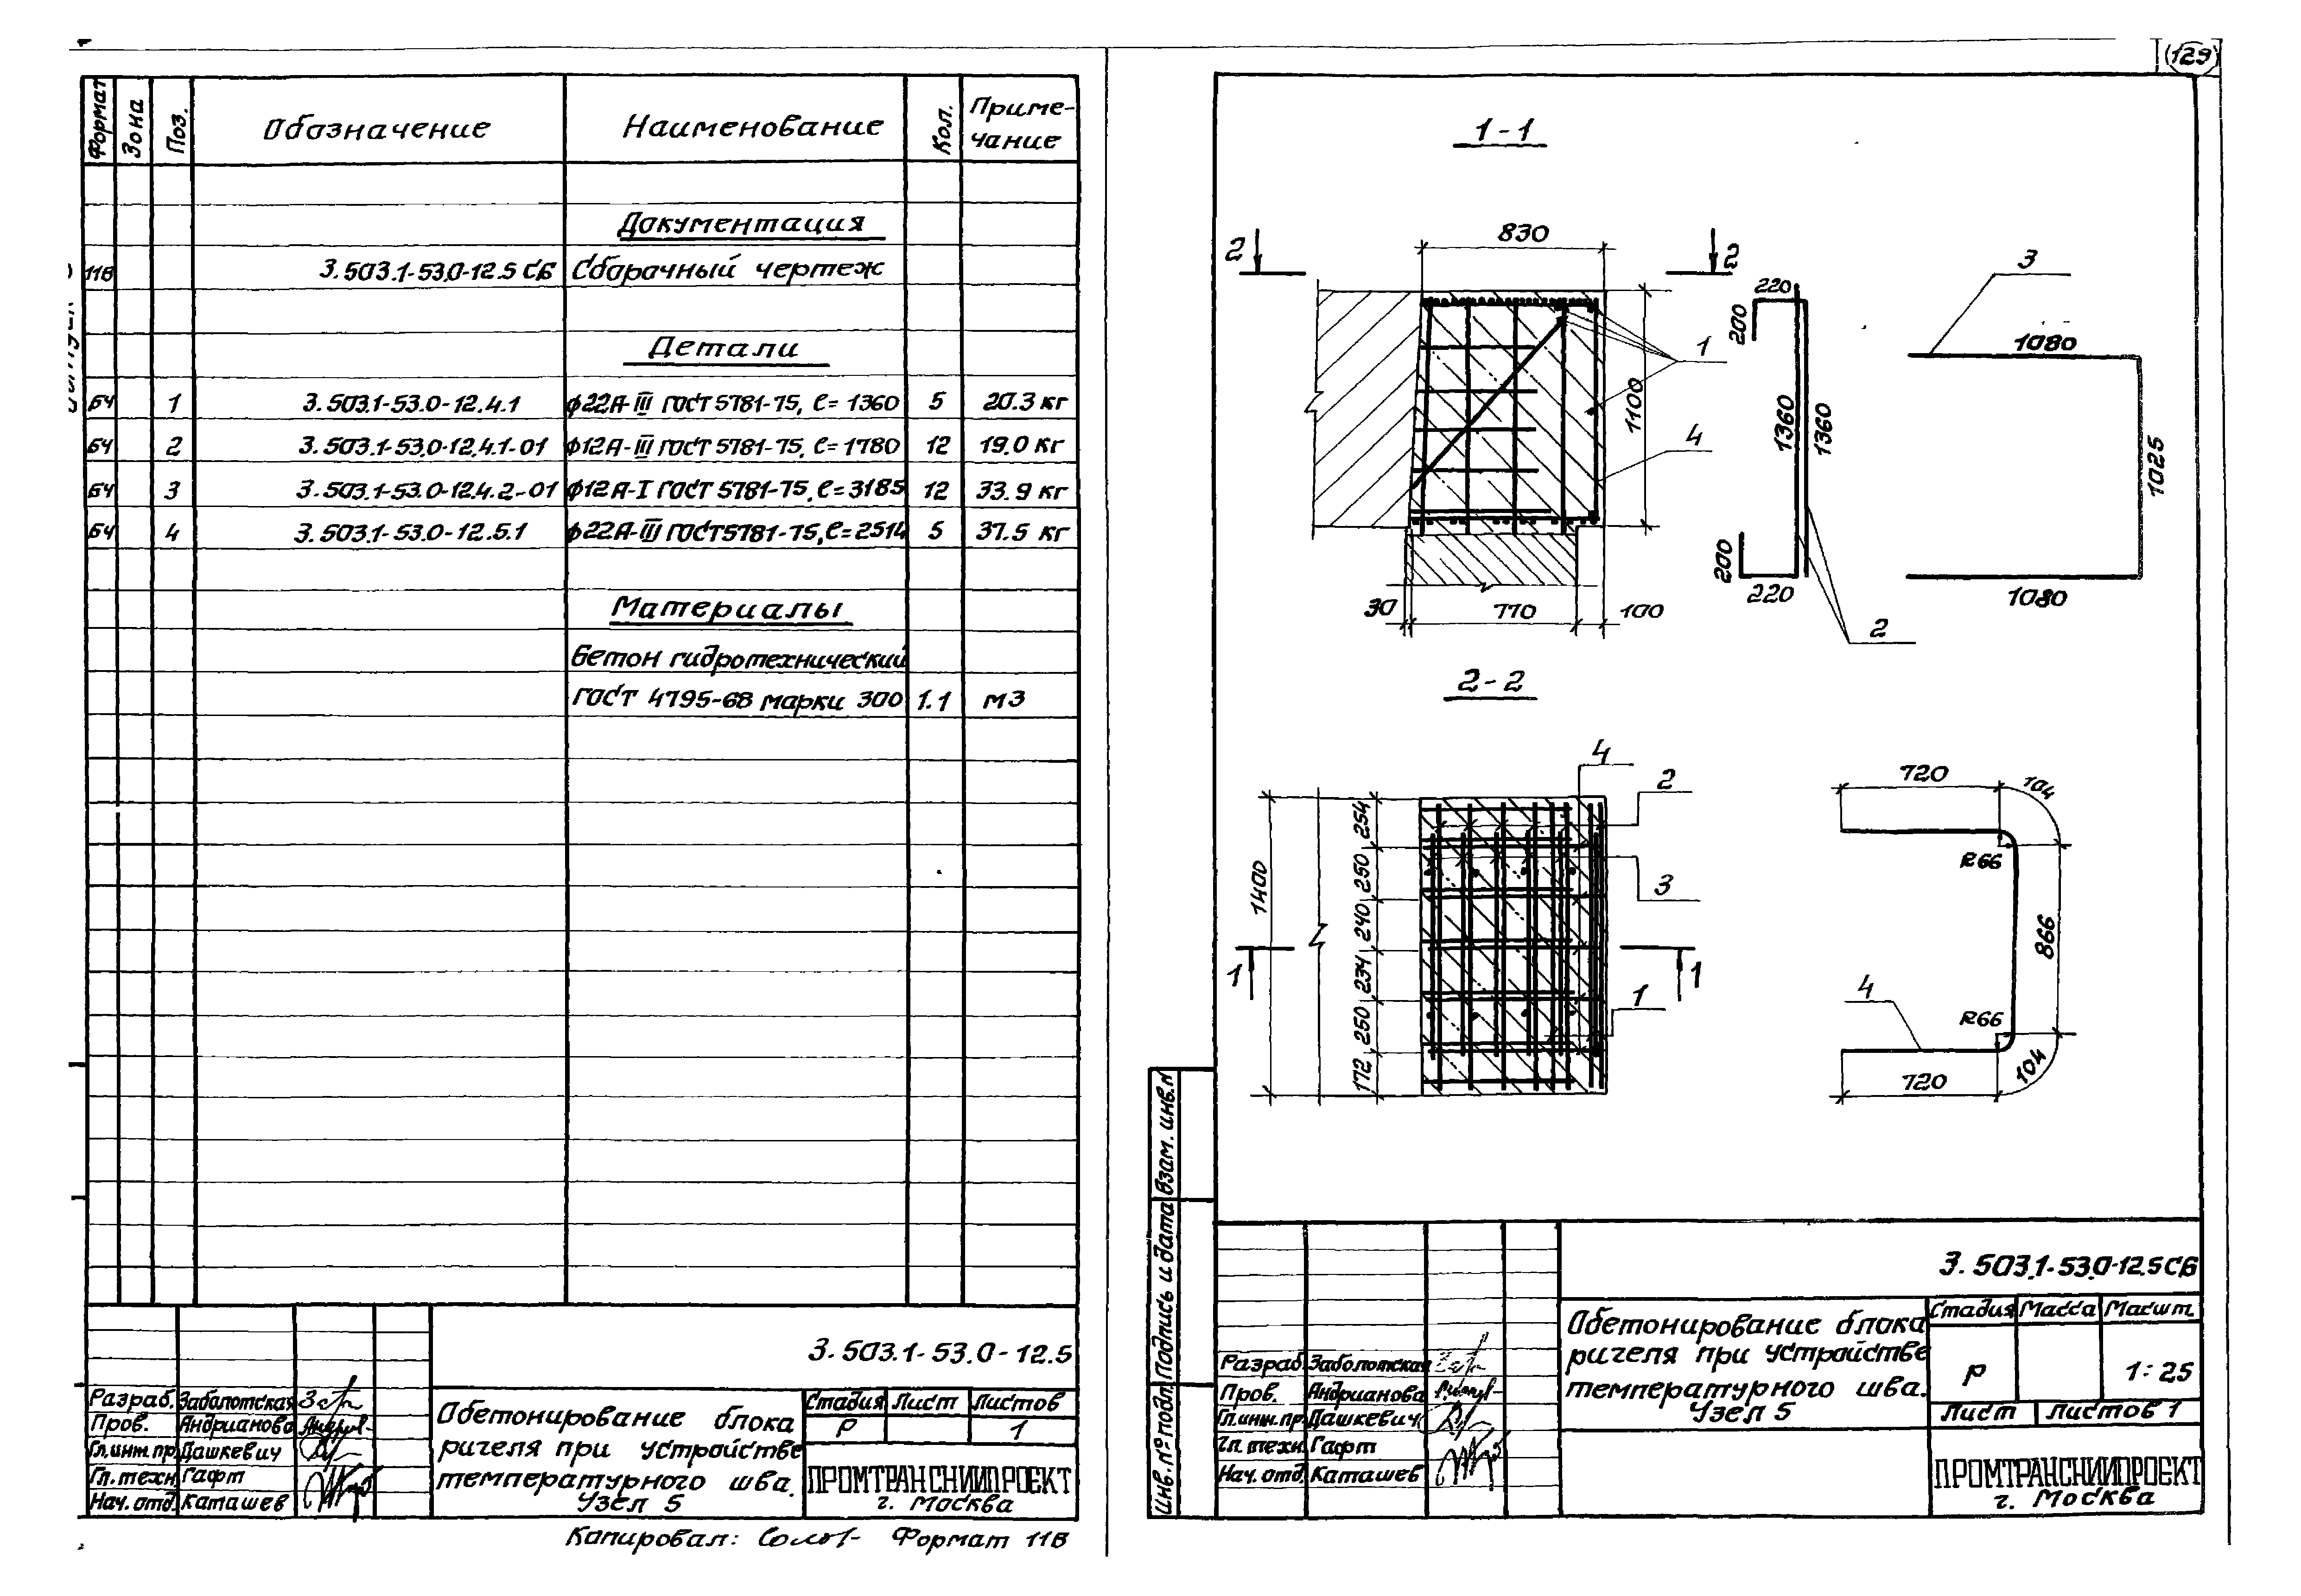 (129)
Формат Зона Поз. Обозначение Наименование Кол. Приме-
чание
Документация
11В 3.503.1-53.0-12.5 СБ Сборочный чертеж
Детали
БЧ 1 3.503.1-53.0-12.4.1 ф22А-III ГОСТ 5781-75, ℓ= 1360 5 20.3 кг
БЧ 2 3.503.1-53.0-12.4.1-01 ф12А-III ГОСТ 5781-75, ℓ= 1780 12 19.0 кг
БЧ 3 3.503.1-53.0-12.4.2-01 ф12А-I ГОСТ 5781-75, ℓ=3185 12 33.9 кг
БЧ 4 3.503.1-53.0-12.5.1 ф22А-III ГОСТ5781-75, ℓ=2514 5 37.5 кг
Материалы
Бетон гидротехнический
ГОСТ 4795-68 марки 300 1.1 м3
3.503.1-53.0-12.5
Разраб. Заболотская
Пров. Андрианова
Гл.инж.пр. Дашкевич
Гл.техн. Гафт
Нач.отд. Каташев
Обетонирование блока
ригеля при устройстве
температурного шва.
Узел 5
Стадия Лист Листов
Р 1
ПРОМТРАНСНИИПРОЕКТ
г. Москва
Копировал: Формат 11В
1-1
2 2
830
1100
1
4
30 770 100
220
200
1360
1360
200
220
2
3
1080
1025
1080
2-2
4
2
3
1
1400
254
250
240
234
250
172
1 1
720
104
R66
866
4
R66
104
720
Инв.№подл. Подпись и дата Взам.инв.№
3.503.1-53.0-12.5СБ
Разраб. Заболотская
Пров. Андрианова
Гл.инж.пр. Дашкевич
Гл.техн. Гафт
Нач.отд. Каташев
Обетонирование блока
ригеля при устройстве
температурного шва.
Узел 5
Стадия Масса Масшт.
Р 1:25
Лист Листов 1
ПРОМТРАНСНИИПРОЕКТ
г. Москва